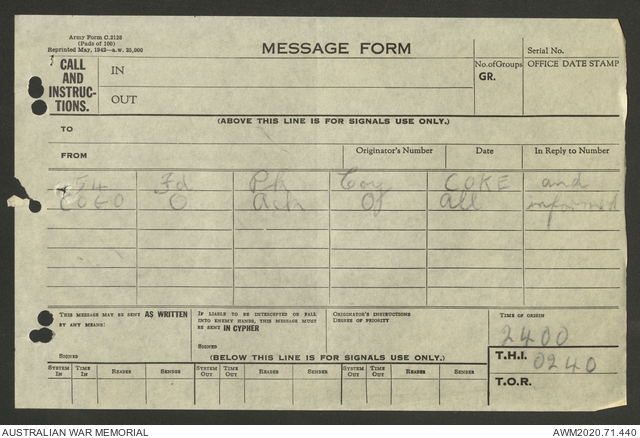 Army Form C.2128
(Pads of 100)
Reprinted May, 1943—a.w. 35,000
MESSAGE FORM
Serial No.
CALL AND INSTRUC- TIONS.
IN
OUT
No. of Groups
GR.
OFFICE DATE STAMP
(ABOVE THIS LINE IS FOR SIGNALS USE ONLY.)
TO
FROM
Originator's Number
Date
In Reply to Number
54 Fd Pk Coy COKE and
O Ack Of all informed
THIS MESSAGE MAY BE SENT AS WRITTEN BY ANY MEANS:
SIGNED
IF LIABLE TO BE INTERCEPTED OR FALL INTO ENEMY HANDS, THIS MESSAGE MUST BE SENT IN CYPHER
SIGNED
ORIGINATOR'S INSTRUCTIONS
DEGREE OF PRIORITY
TIME OF ORIGIN
2400
T.H.I. 0240
T.O.R.
(BELOW THIS LINE IS FOR SIGNALS USE ONLY.)
SYSTEM IN TIME IN READER SENDER SYSTEM OUT TIME OUT READER SENDER SYSTEM OUT TIME OUT READER SENDER
AUSTRALIAN WAR MEMORIAL
AWM2020.71.440